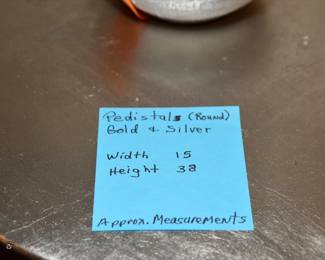 Pedistals (Round)
Gold & Silver
Width 15
Height 38
Approx. Measurements